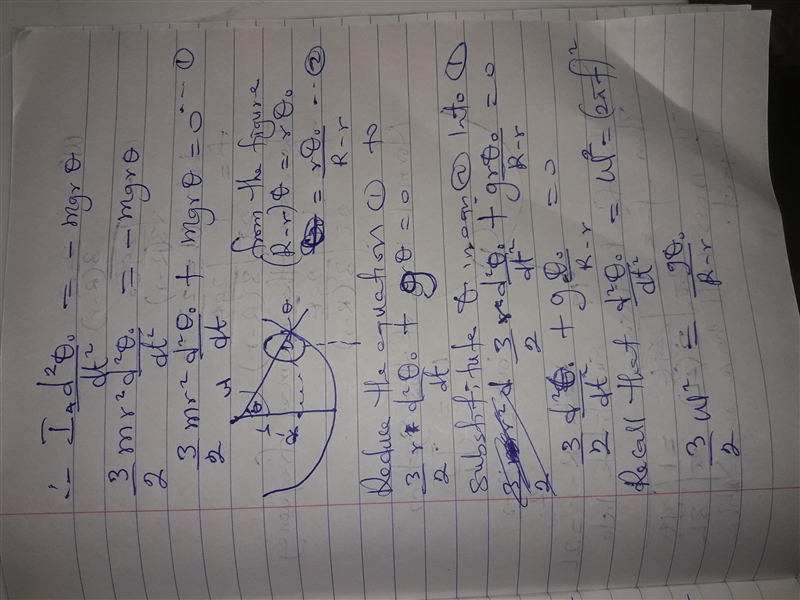 ∴ I_A d²θ₀/dt² = - mgrθ
3/2 mr² d²θ₀/dt² = - mgrθ
3/2 mr² d²θ₀/dt + mgrθ = 0 --- ①
from the figure
(R-r)θ = rθ₀
θ = rθ₀/R-r --- ②
Reduce the equation ① to
3/2 r d²θ₀/dt + gθ = 0
Substitute in eqn ② into ①
3/2 r d²θ₀/dt² + grθ₀/R-r = 0
3/2 d²θ₀/dt² + gθ₀/R-r = 0
Recall that d²θ₀/dt² = W² = (2πf)²
3/2 W² = gθ₀/R-r